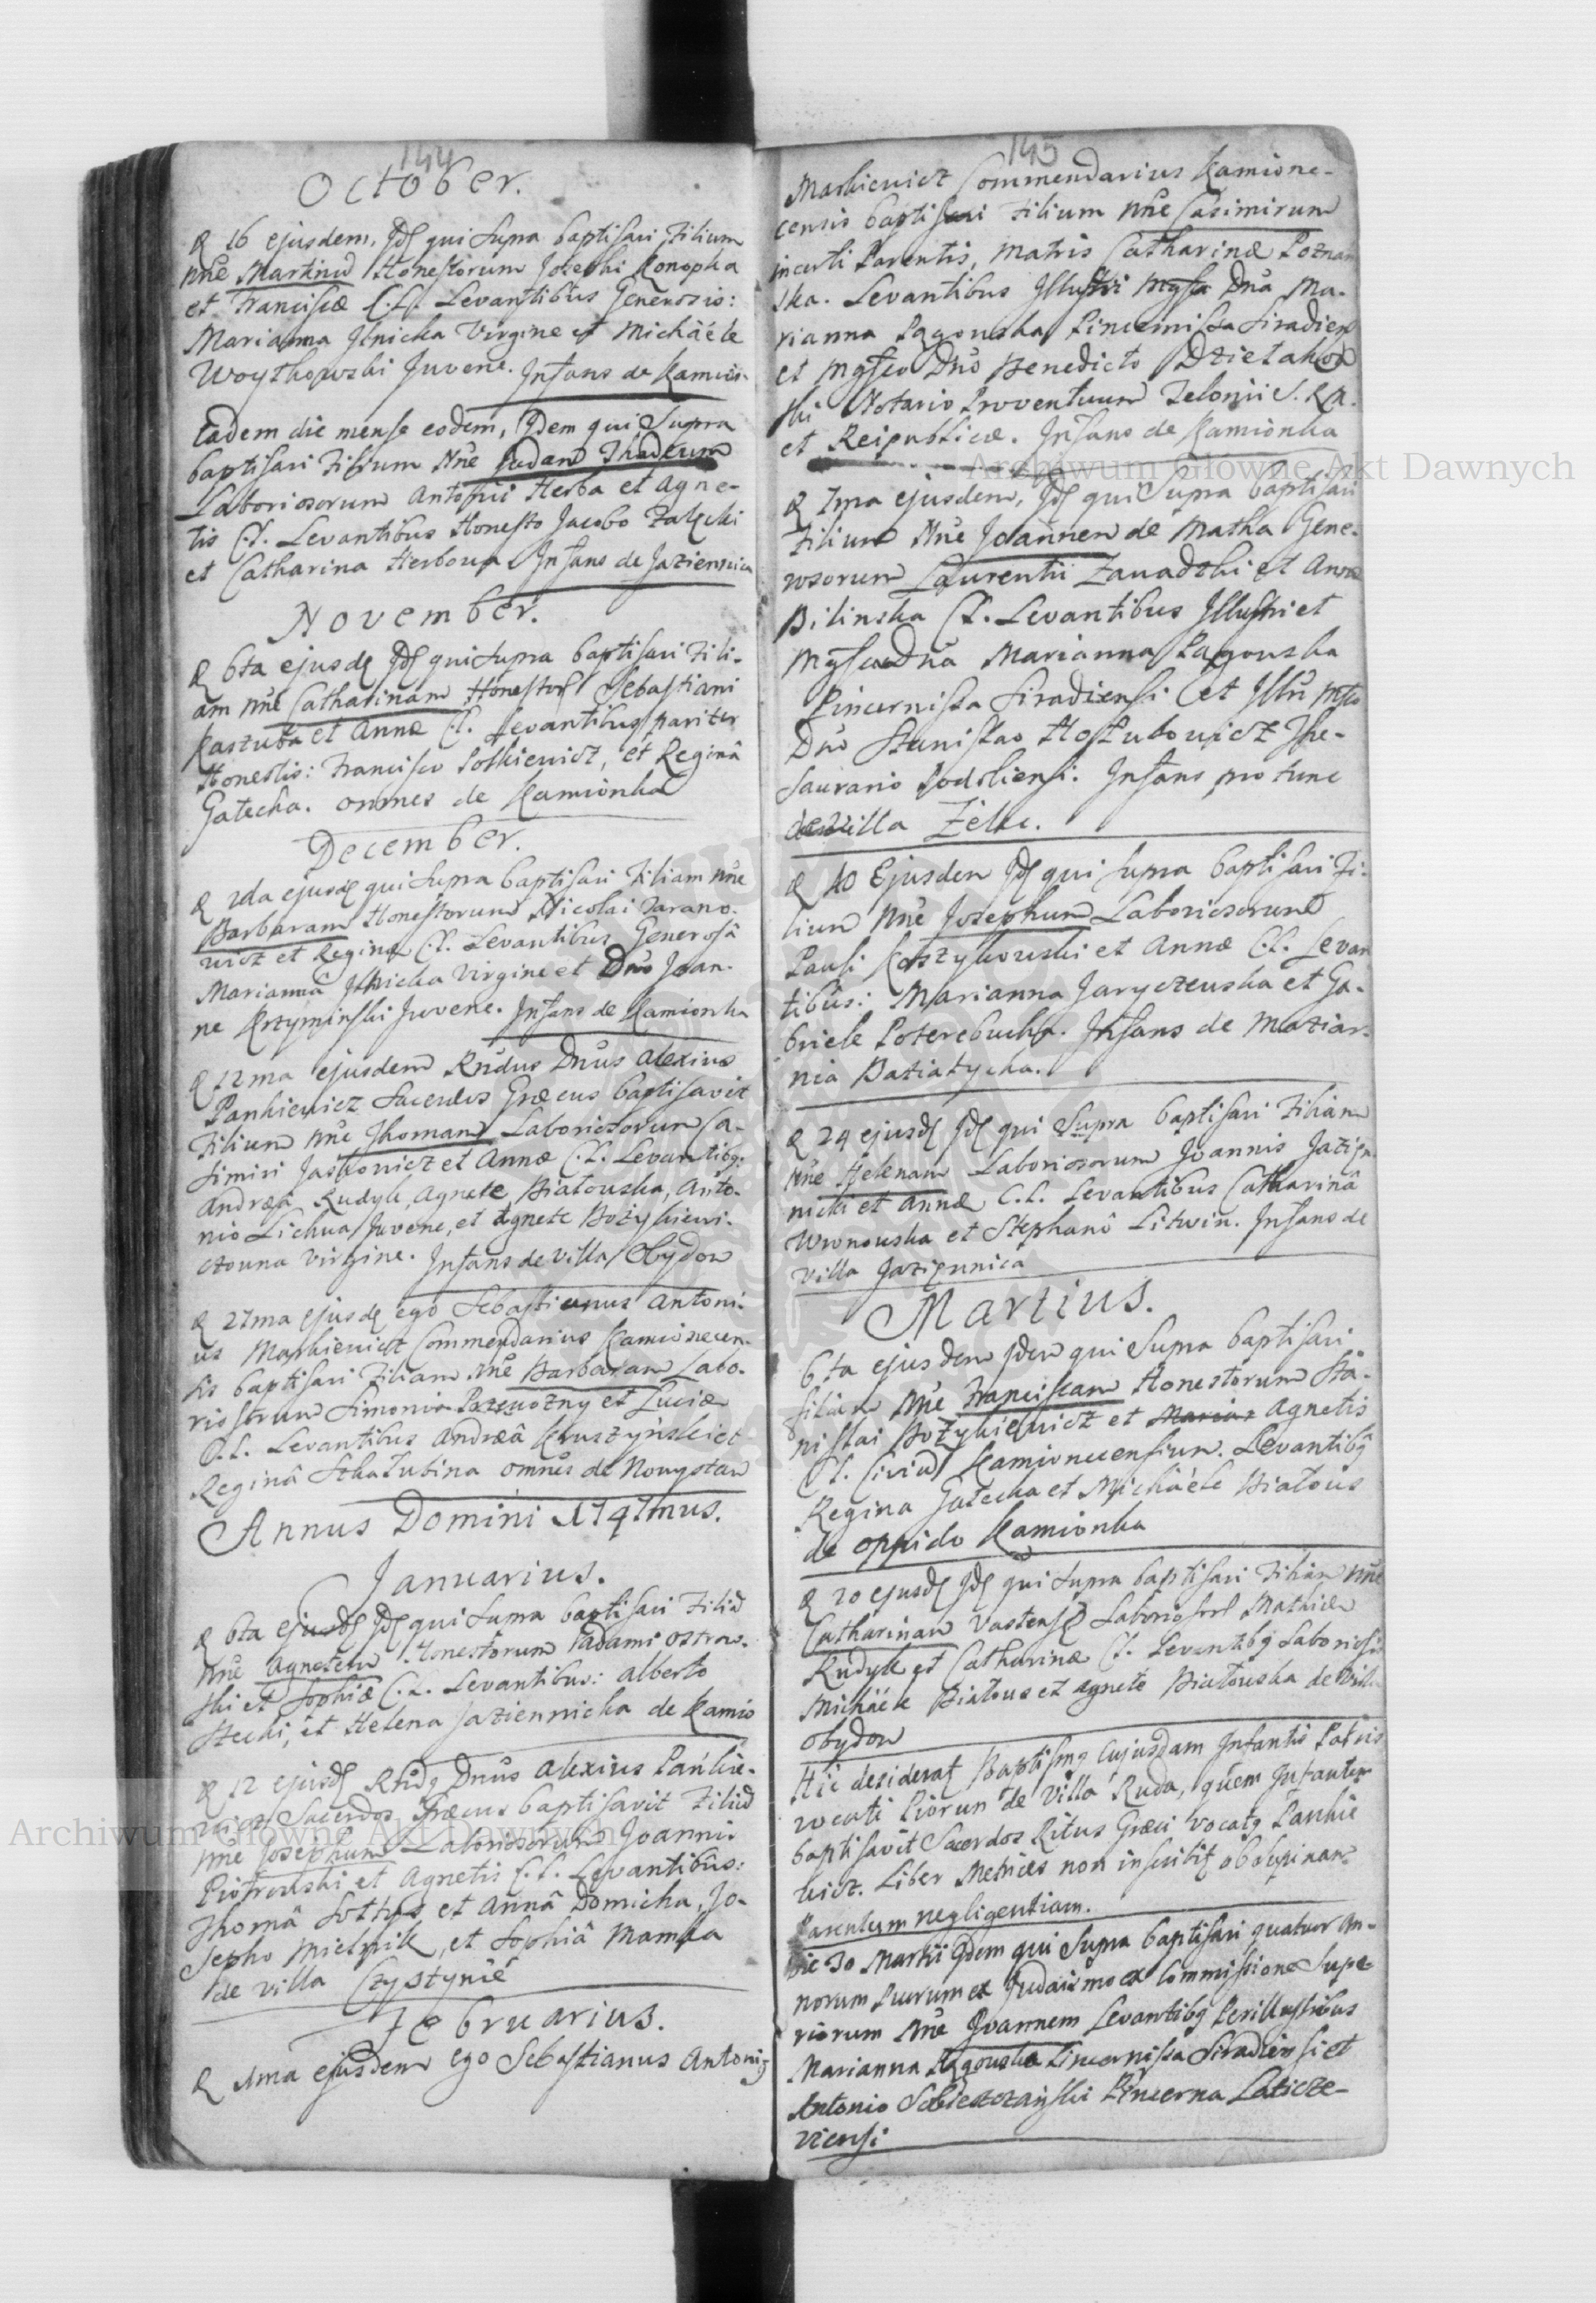 144
October.
16 ejusdem, Jd qui Supra baptisavi Filium
Nne Martinū Honestorum Josephi Konopka
et Franciscæ C.L. Levantibus Generosis:
Marianna Jlnicka Virgine et Michaële
Woythowski Juvene. Infans de Kamion-
Eadem die mense eodem, Jdem qui Supra
baptisavi Filium Nne Judam Thadeum
Laboriosorum Antonii Herba et Agne-
tis C.L. Levantibus Honesto Jacobo Załęcki
et Catharina Herbowa. Infans de Jazienica
November.
6ta ejusd Jd qui Supra baptisavi Fili-
am Nne Catharinam Honestor Sebastiani
Kaszuba et Annæ C.L. Levantibus pariter
Honestis: Francisco Poskiewicz, et Reginâ
Gałecka. omnes de Kamionka
December.
2da ejusd qui Supra baptisavi Filiam Nne
Barbaram Honestorum Nicolai Tarano-
wicz et Reginæ C.L. Levantibus Generosâ
Marianna Jlnicka Virgine et Dno Joan-
ne Krzyminski Juvene. Infans de Kamionka
12ma ejusdem Rndus Dnus Alexius
Pankiewicz Sacerdos Græcus baptisavit
Filium Nne Thomam Laboriosorum Ca-
simiri Jaskowicz et Annæ C.L. Levantibq:
Andreâ Rudyk, Agnete Białouska, Anto-
nio Lichwa Juvene, et Agnete Bożykiewi-
czowna Virgine. Infans de Villa Obydow
27ma ejusd ego Sebastianus Antoni-
us Maskiewicz Commendarius Kamionecen-
sis baptisavi Filiam Nne Barbaram Labo-
riosorum Simonis Przewozny et Luciæ
C.L. Levantibus Andreâ Kruszyński et
Reginâ Skałubina omnes de Nowystaw
Annus Domini 1747mus.
Januarius.
6ta ejusd Jd qui Supra baptisavi Filiā
Nne Agnetem Honestorum Adami Ostrow-
ski et Sophiæ C.L. Levantibus: Alberto
Stecki, et Helena Jaziennicka de Kamio
12 ejusd Rndq Dnus Alexius Pańkie-
wicz Sacerdos Græcus baptisavit Filiū
Nne Josephum Laboriosorum Joannis
Piotrowski et Agnetis C.L. Levantibus:
Thomâ Sottys et Annâ Domicka, Jo-
sepho Mielnik, et Sophiâ Mamka
de villa Czystynie
Februarius.
1ma ejusdem ego Sebastianus Antoniq
145
Maskiewicz Commendarius Kamione-
censis baptisavi Filium Nne Casimirum
incerti Parentis, Matris Catharinæ Poznan
ska. Levantibus Illustri Mgfca Dnâ Ma-
rianna Łagowska Pincernissa Siradien
et Mgfco Dno Benedicto Dzietakow
ski Notario Proventuum Telonii S.R.M.
et Reipublicæ. Infans de Kamionka
7ma ejusdem, Jd qui Supra baptisavi
Filium Nne Joannem de Matha Gene-
rosorum Laurentii Zawadzki et Annæ
Bilinska C.L. Levantibus Illustri et
Mgfca Dnâ Marianna Łagowska
Pincernissa Siradiensi et Illu Mfco
Dno Stanislao Hołubowicz The-
saurario Podoliensi. Infans pro tunc
de Villa Żelec.
10 Ejusdem Jd qui Supra baptisavi Fi-
lium Nne Josephum Laboriosorum
Pauli Koszykowski et Annæ C.L. Levan
tibus: Marianna Jaryczewska et Ga-
briele Poterebucka. Infans de Maziar-
nia Batiatycka.
24 ejusd Jd qui Supra baptisavi Filiam
Nne Helenam Laboriosorum Joannis Jazien
nicki et Annæ C.L. Levantibus Catharinâ
Wronowska et Stephanô Litwin. Infans de
Villa Jaziennica
Martius.
6ta ejusdem Jdem qui Supra baptisavi
filiam Nne Franciscam Honestorum Sta-
nislai Bożykiewicz et Agnetis
C.L. Civiū Kamionecensium. Levantibq
Regina Gałecka et Michaële Białous
de oppido Kamionka
20 ejusd Jd qui Supra baptisavi Filiam Nne
Catharinam Laboriosor Mathiæ
Rudyk et Catharinæ C.L. Levantibq Laboriosis
Michaële Białous et Agnete Białouska de Villa
Obydow
Hic desideraz Baptismq Cujusdam Infantis Patris
vocati Piorun de Villa Ruda, quem Infantem
baptisavit Sacerdos Ritus Græci Vocatq Pankie
wicz. Liber Metrices non inscribit ob
Parentum negligentiam.
Die 30 Martii Jdem qui Supra baptisavi quatuor an-
norum Puerum ex Judaismo ex Commissione Supe-
riorum Nne Joannem Levantibq Perillustribus
Marianna Łagowska Pincernissa Siradiensi et
Antonio Pincerna Latycze-
viensi
Archiwum Główne Akt Dawnych
Archiwum Główne Akt Dawnych